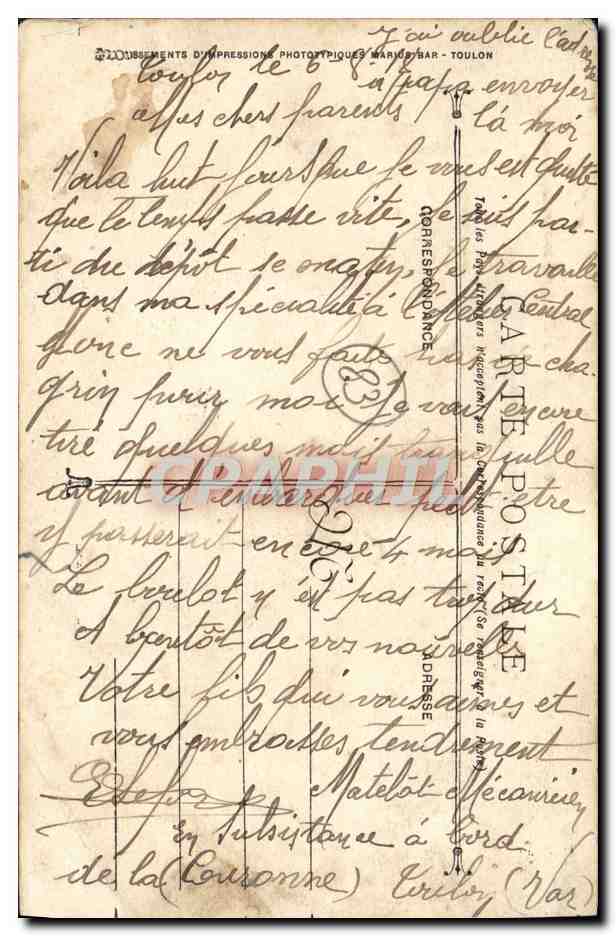 J'ai oublie l'adresse
ETABLISSEMENTS D'IMPRESSIONS PHOTOTYPIQUES MARIUS BAR - TOULON
Toulon le 6
a papa envoyer
là moi
Mes chers parents
Voila huit jours que je vous est quitté
que le temps passe vite, Je suis par-
ti du dépôt se matin, Je travaille
dans ma spécialité à l'atelier Central
donc ne vous faite pas de cha-
grin pour moi Je vais encore
tiré quelques mois tranquille
avant d'embarquer peut etre
y passerait encore 4 mois
Le boulot y est pas trop dur
A bientôt de vos nouvelles
Votre fils qui vous aimes et
vous embrasses tendrement
Matelot Mécanicien
en subsistance à bord
de la (Couronne) Toulon (Var)
83
CARTE POSTALE
Tous les Pays étrangers n'acceptent pas la Correspondance au recto (Se renseigner à la Poste)
CORRESPONDANCE
ADRESSE
CPAPHIL